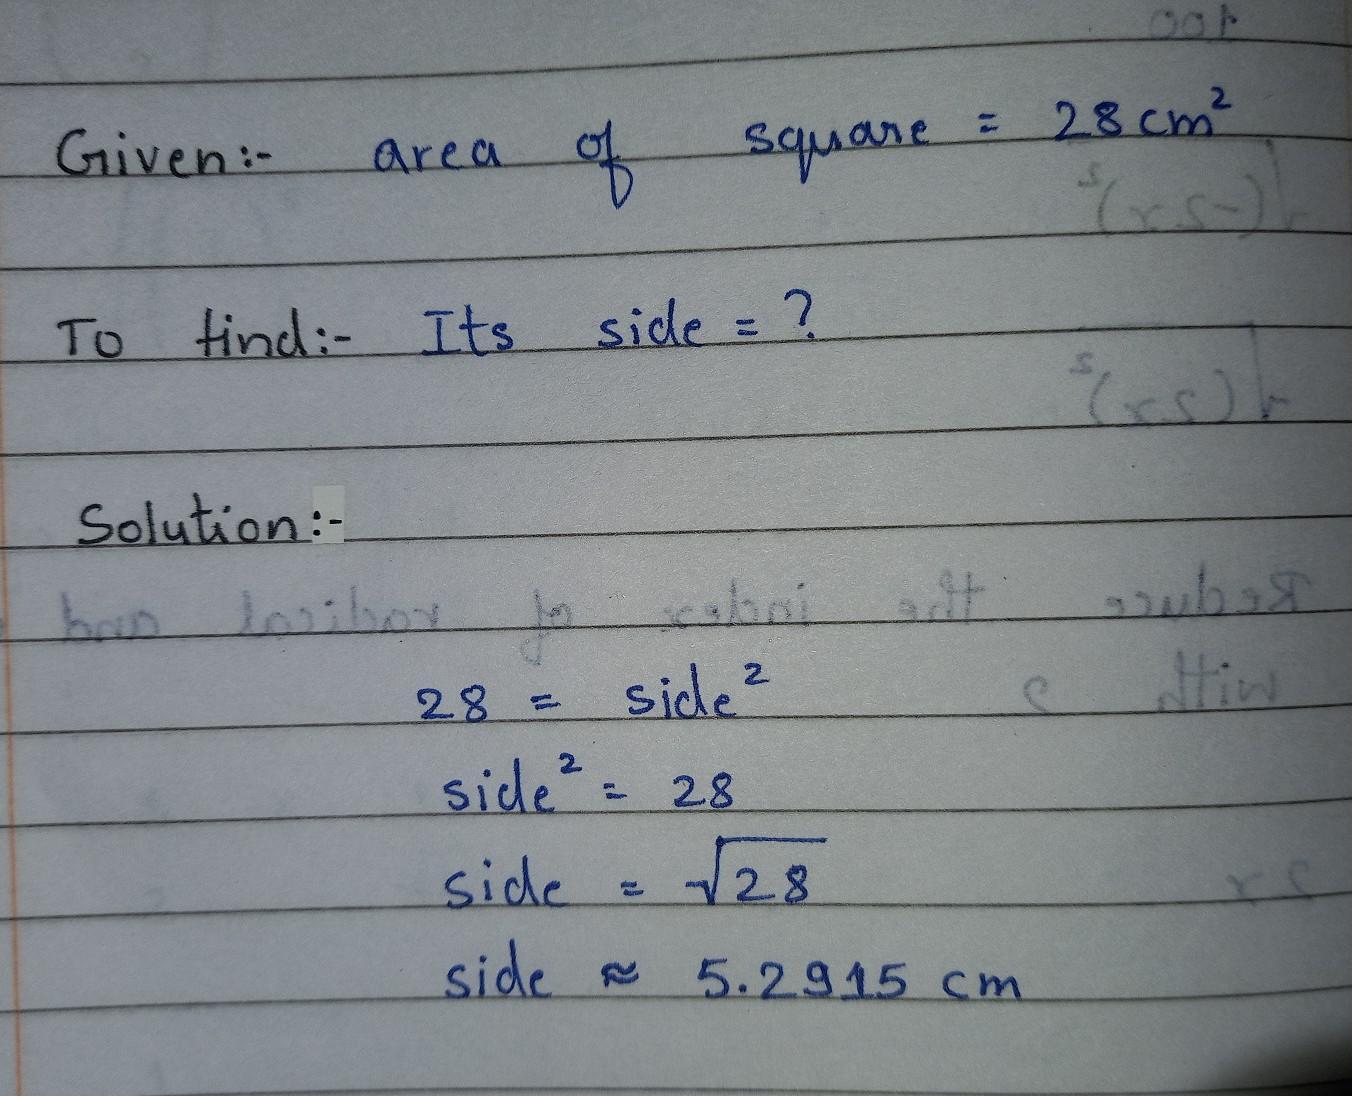 Given:- area of square = 28 cm²
To find:- Its side = ?
Solution:-
28 = side²
side² = 28
side = √28
side ≈ 5.2915 cm